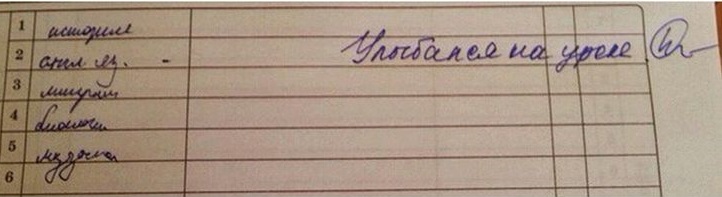 1 история
2 англ яз. - Улыбался на уроке.
3 литерат
4 биология
5 музыка
6